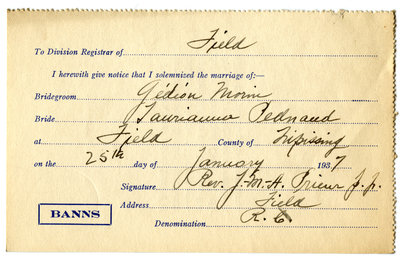 To Division Registrar of Field
I herewith give notice that I solemnized the marriage of:—
Bridegroom Gédéon Morin
Bride Laurianna Pednaud
at Field County of Nipissing
on the 25th day of January 1937
Signature Rev. J.-M.-A. Prieur p.p.
BANNS
Address Field
Denomination R. C.